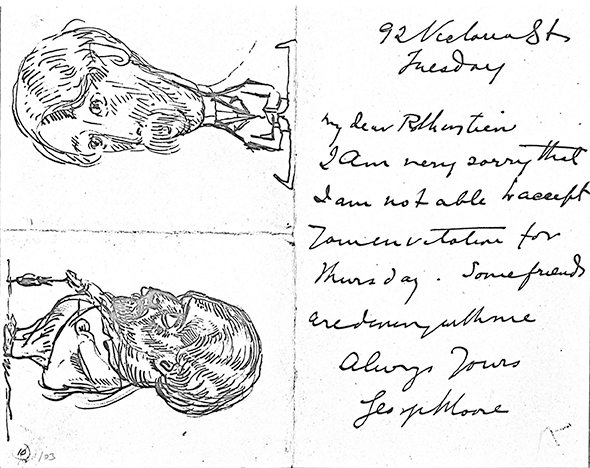 92 Victoria St
Tuesday
My dear Rothenstein
I am very sorry that
I am not able to accept
your invitation for
Thursday. Some friends
are dining with me
Always Yours
George Moore
10
/03